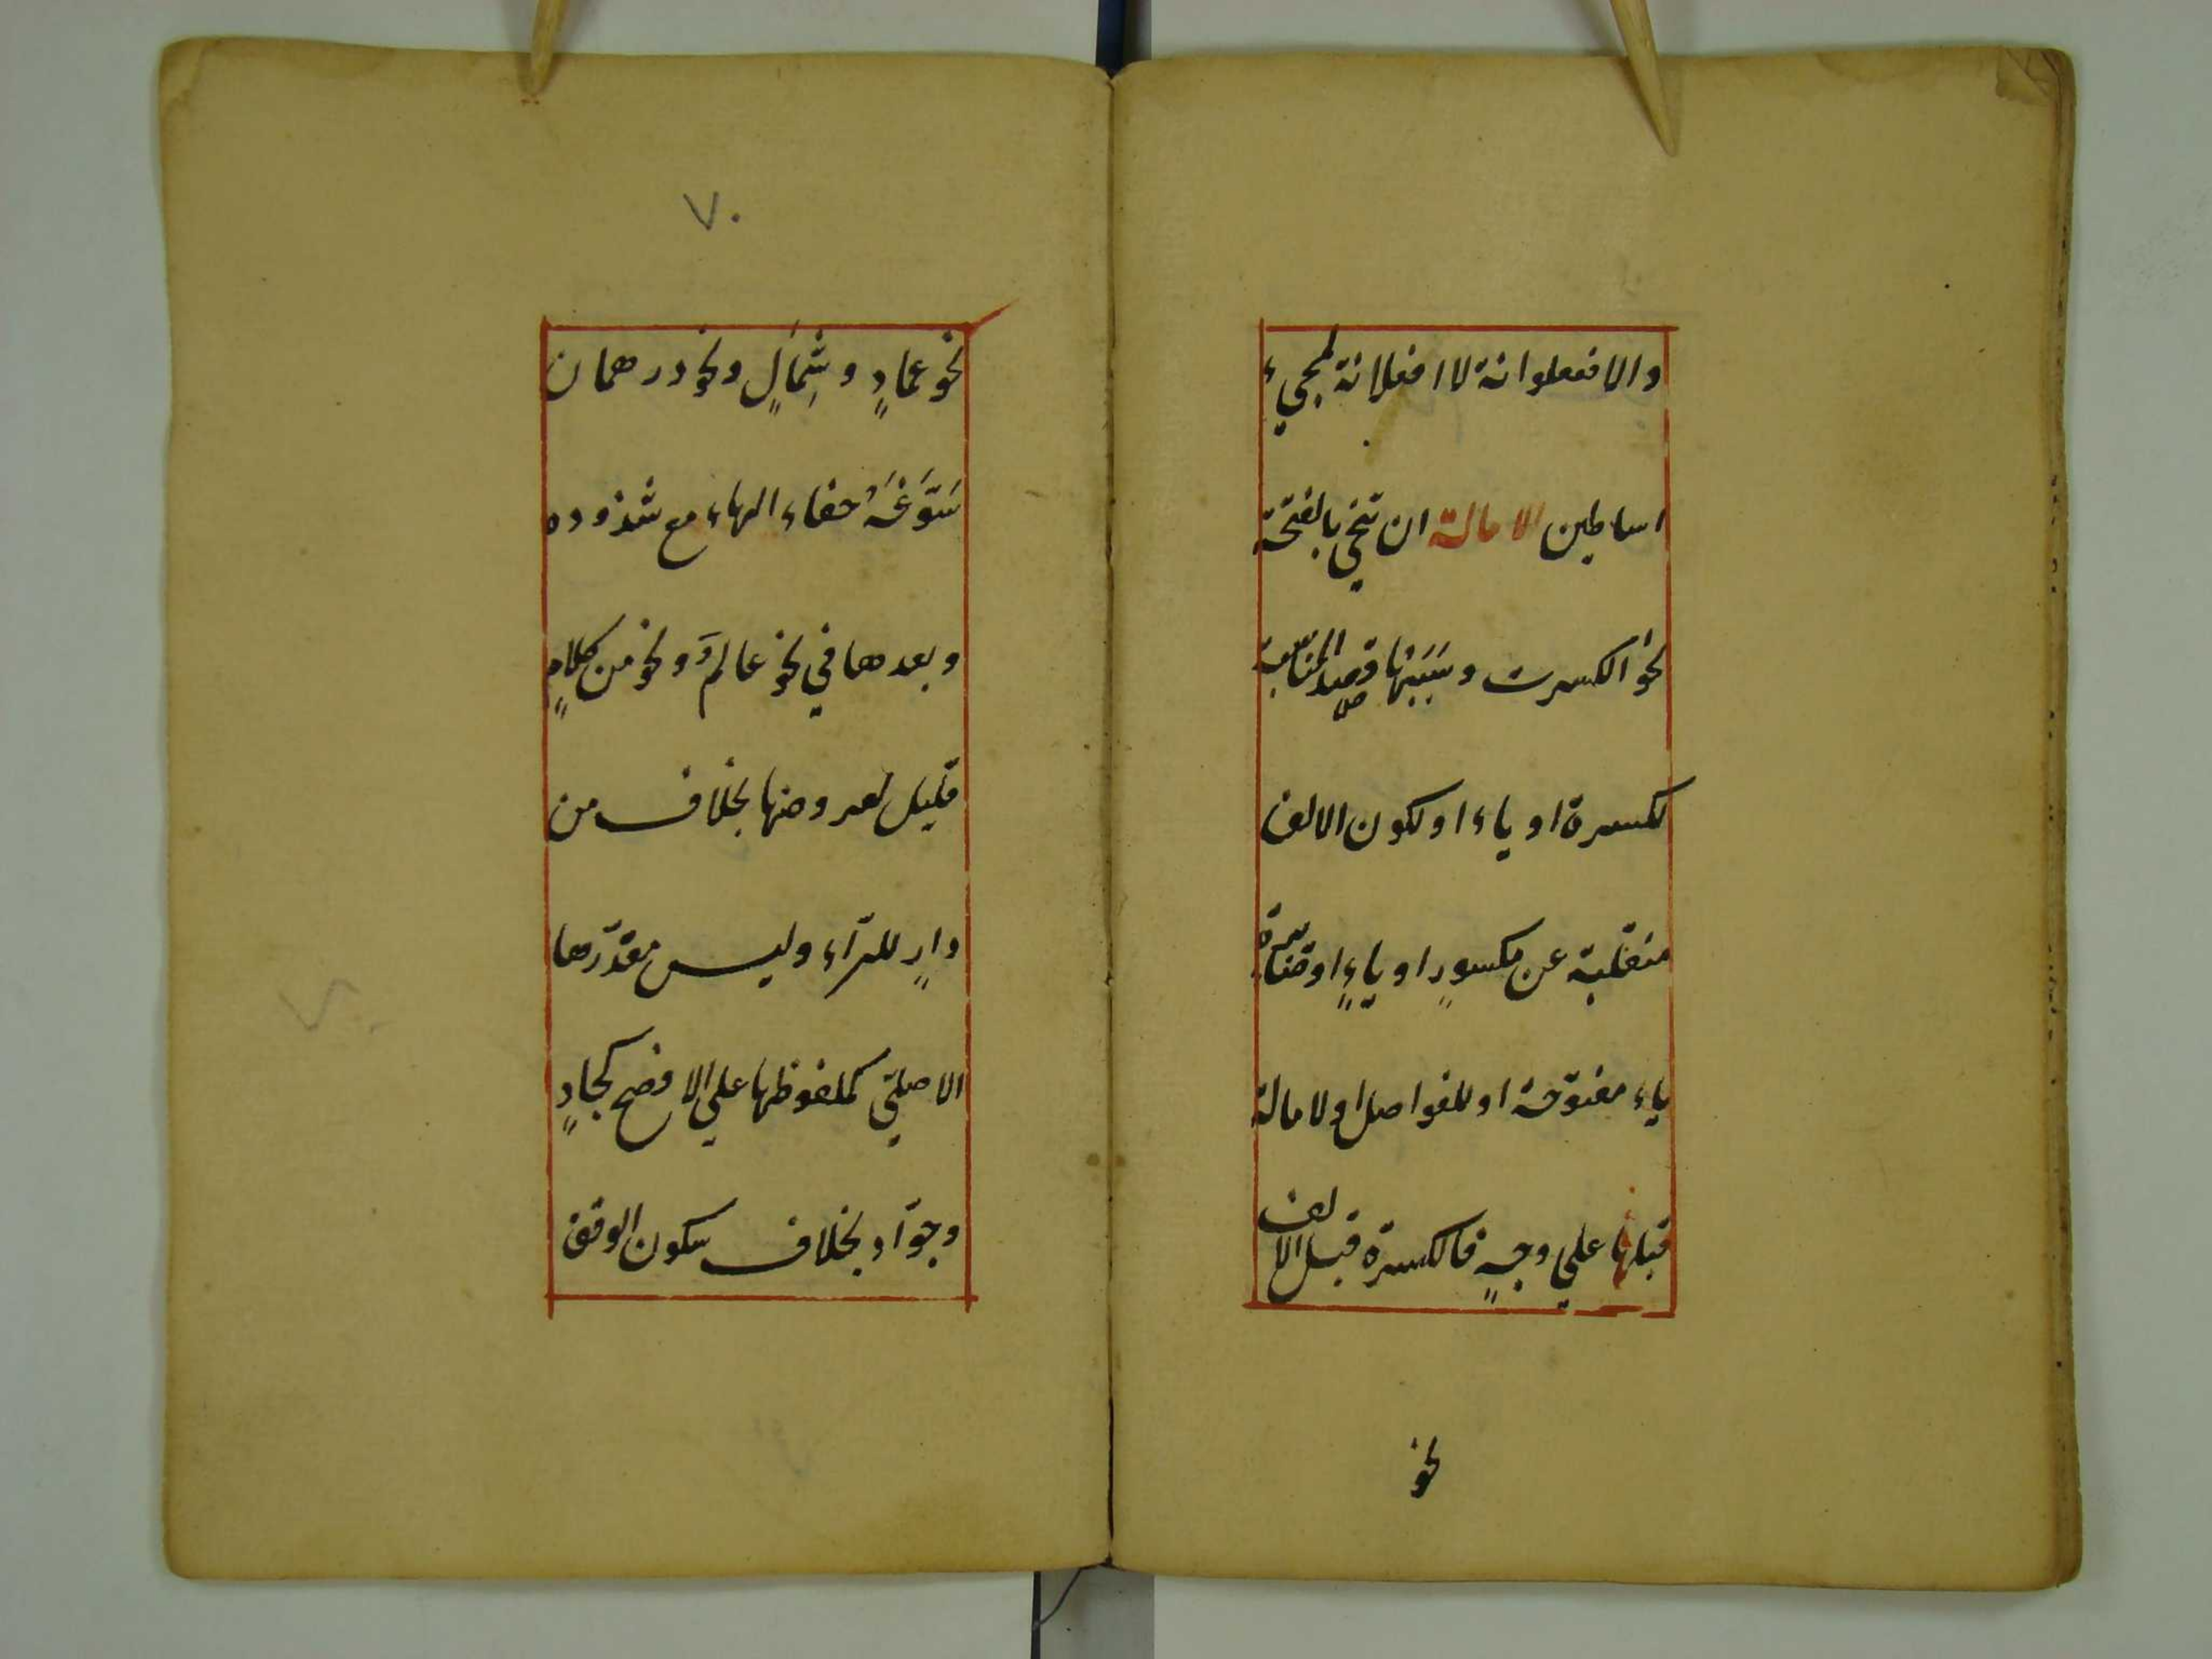 والا فعلوانة لا افعلانة لمجيء
اساطين الامالة ان تنحي بالفتحة
نحو الكسرت وسببها قصد المناسبة
لكسرة او ياء او لكون الالف
منقلبة عن مكسورٍ او ياءٍ او صائرة
ياء مفتوحة او للفواصل او لامالة
قبلها علي وجهٍ فالكسرة قبل الالف
نحو
٧٠
نحو عمادٍ وشِمَالٍ ونحو درهمان
سَوَّغَهُ خفاء الهاء مع شذوذه
وبعدها في نحو عالمٍ ونحو من كلامٍ
قليل لعروضها بخلاف من
دارٍ للرّاء وليس مقدّرها
الاصليّ كملفوظها علي الافصح كجادٍ
وجوّاد بخلاف سكون الوقف
٧٠